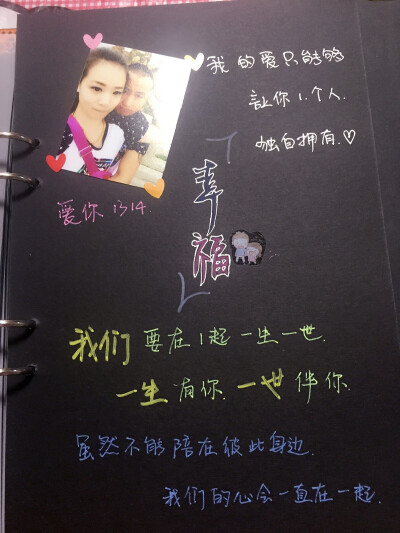 我的爱只能够
让你1个人.
独自拥有.♡
爱你 1314
幸
福
我们 要在1起 一生一世.
一生有你. 一世伴你.
虽然不能陪在彼此身边.
我们的心会一直在一起.